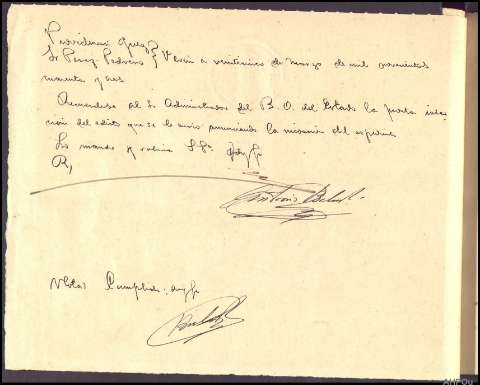 Providencia Juez
Sr Perez Pedrero Verin a veinticinco de marzo de mil novecientos
cuarenta y seis
Recuerdese al Sr Administrador del B. O. del Estado la pronta inser
cion del edicto que se le envio anunciando la incoacion del expediente
Lo mando y rubrica S Sª doy fe
R,
Antonio
Nota: Cumplido: doy fe